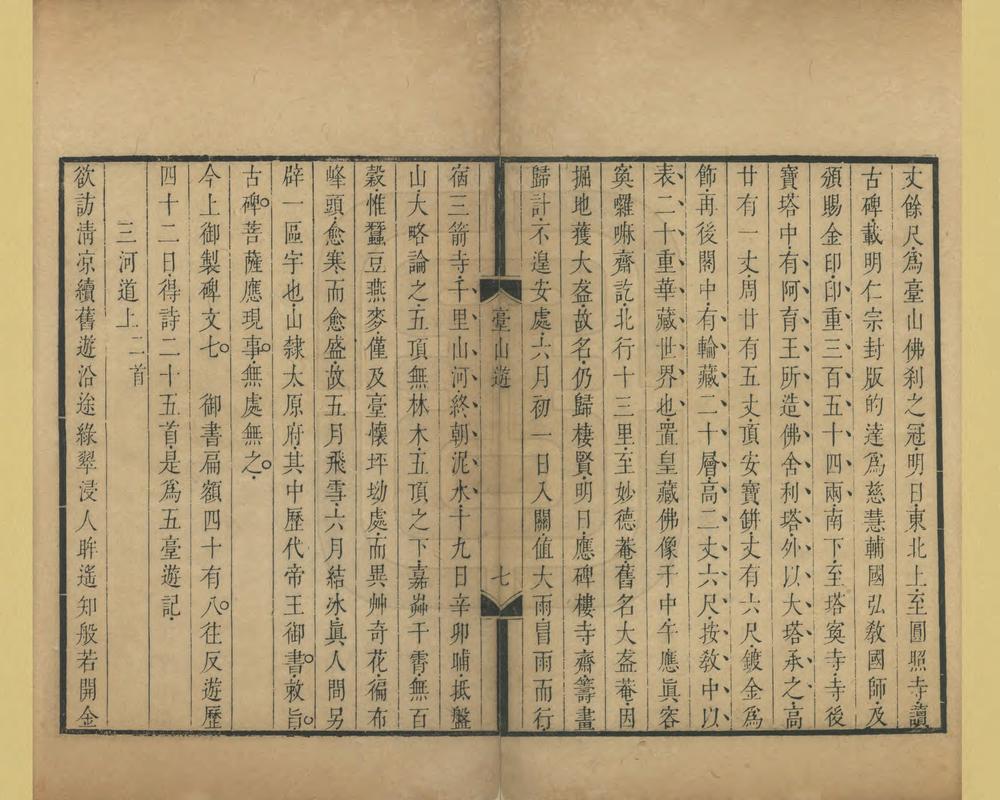 丈餘尺爲臺山佛刹之冠明日東北上至圓照寺讀
古碑載明仁宗封版的達爲慈慧輔國弘教國師及
頒賜金印印重三百五十四兩南下至塔寞寺寺後
寶塔中有阿育王所造佛舍利塔外以大塔承之高
廿有一丈周廿有五丈頂安寶缾丈有六尺鍍金爲
飾再後閣中有輪藏二十層高二丈六尺按敎中以
表二十重華藏世界也置皇藏佛像于中午應眞容
寞囉嘛齋訖北行十三里至妙德菴舊名大盋菴因
掘地獲大盋故名仍歸棲賢明日應碑樓寺齋籌畫
歸計不遑安處六月初一日入關値大雨冒雨而行
臺山遊
七
宿三箭寺千里山河終朝泥水十九日辛卯晡抵盤
山大略論之五頂無林木五頂之下嘉蘤干霄無百
穀惟蠶豆燕麥僅及臺懷坪坳處而異艸奇花徧布
峰頭愈寒而愈盛故五月飛雪六月結冰眞人間另
辟一區宇也山隸太原府其中歷代帝王御書敕旨
古碑菩薩應現事無處無之
今上御製碑文七 御書扁額四十有八往反遊歷
四十二日得詩二十五首是爲五臺遊記
三河道上 二首
欲訪淸凉續舊遊沿途綠翠浸人眸遙知般若開金